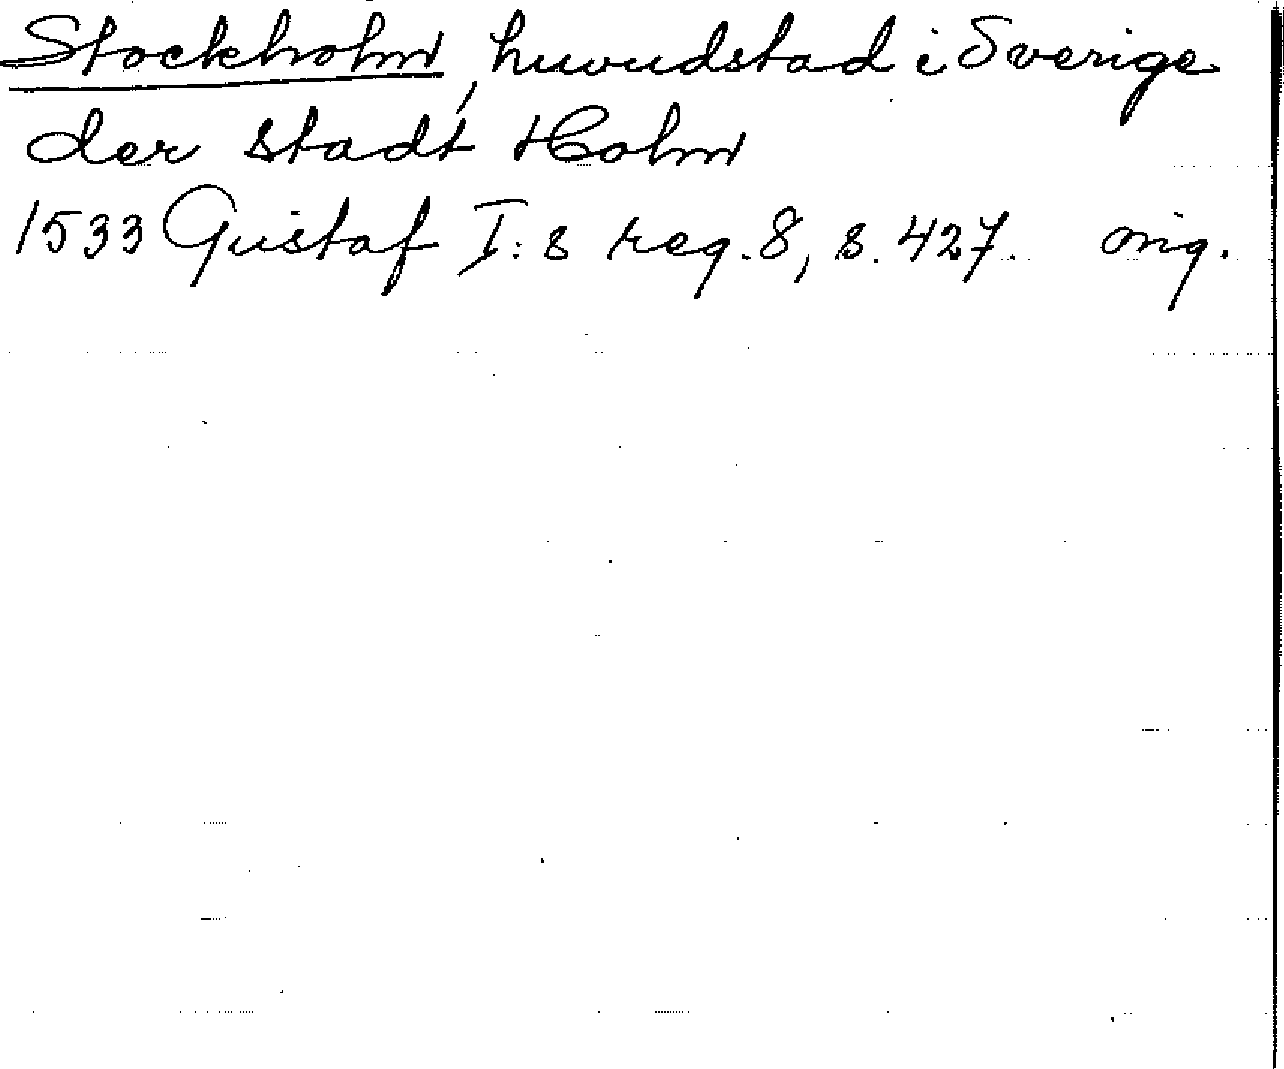 Stockholm, huvudstad i Sverige
der stadt Holm
1533 Gustaf I:s reg. 8, s. 427. orig.